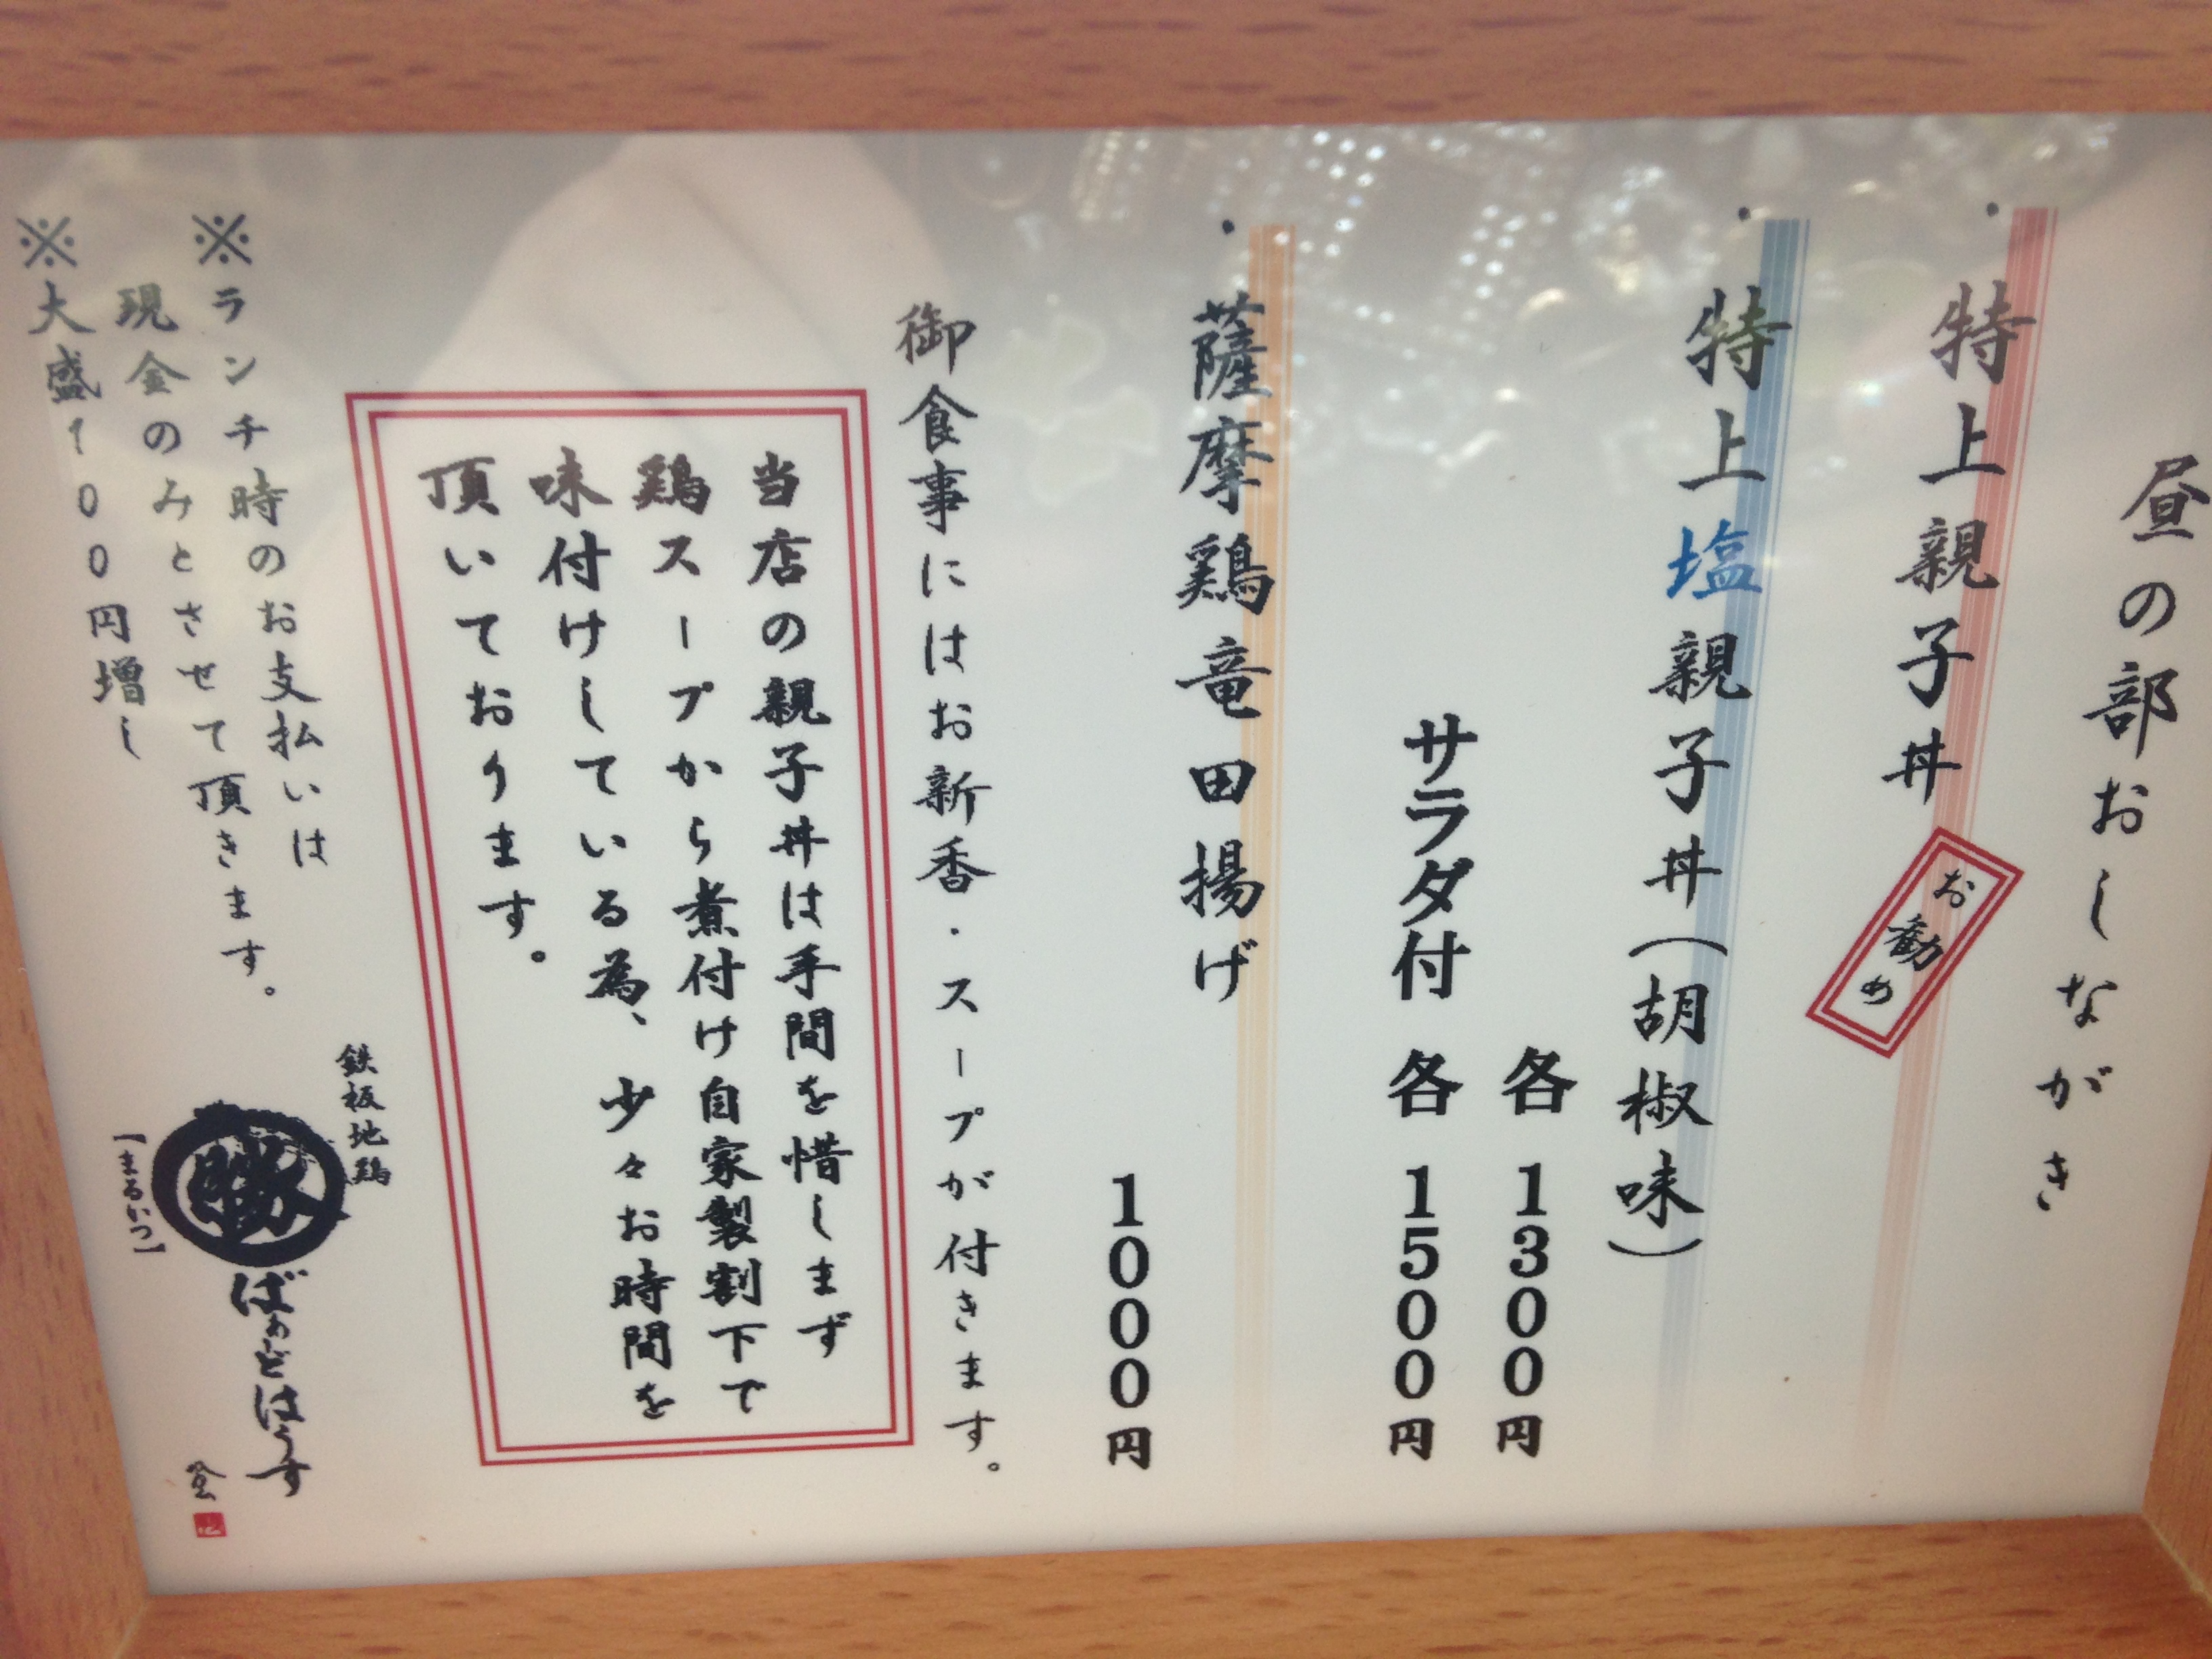 昼の部おしながき
・特上親子丼
お勧め
・特上塩親子丼(胡椒味)
各 1300円
サラダ付 各 1500円
・薩摩鶏竜田揚げ
1000円
御食事にはお新香・スープが付きます。
当店の親子丼は手間を惜しまず
鶏スープから煮付け自家製割下で
味付けしている為、少々お時間を
頂いております。
※ランチ時のお支払いは
現金のみとさせて頂きます。
※大盛100円増し
鉄板地鶏
ばぁーどはうす
【まるいつ】